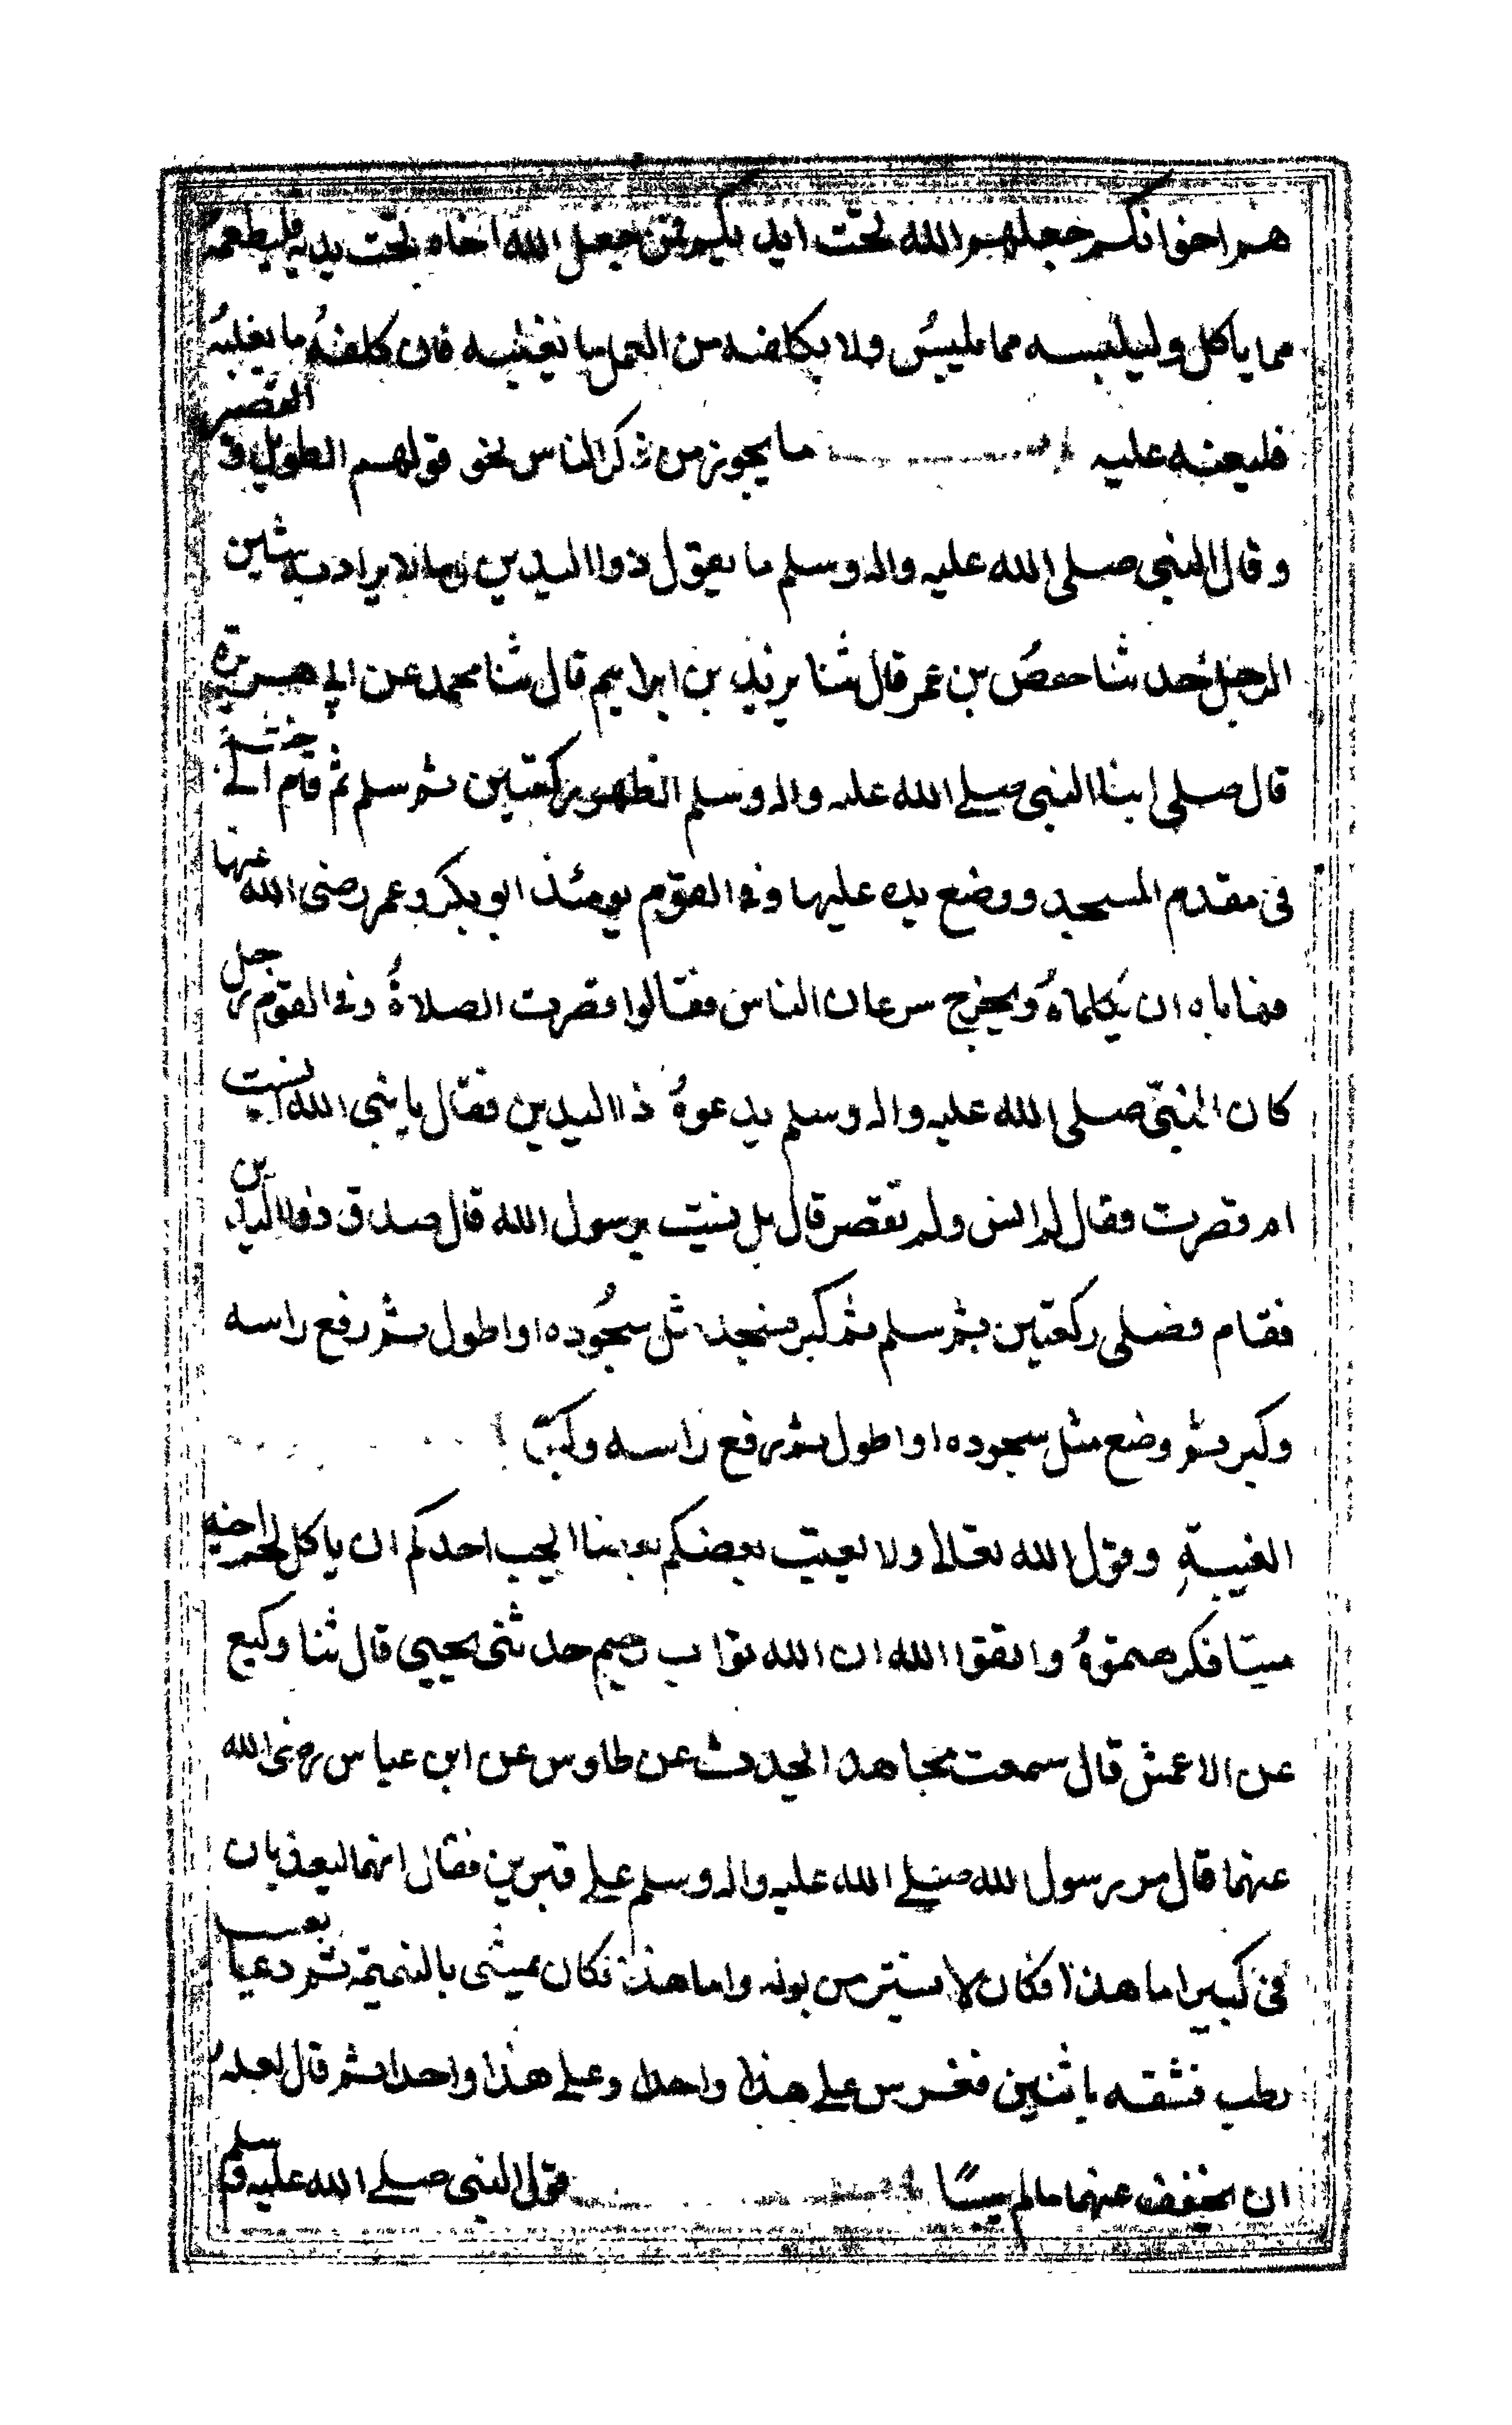 هم اخوانكم جعلهم الله تحت ايديكم فمن جعل الله اخاه تحت يديه فليطعمه
مما ياكل وليلبسه مما يلبس ولا يكلفه من العمل ما يغلبه فان كلفه ما يغلبه
فليعنه عليه ما يجوز من ذكر الناس نحو قولهم الطويل والقصير
وقال النبي صلى الله عليه واله وسلم ما يقول ذوا اليدين وما لا يراد به شين
الرجل حدثنا حفص بن عمر قال ثنا يزيد بن ابراهيم قال ثنا محمد عن ابي هريرة
قال صلى بنا النبي صلى الله عليه واله وسلم الظهر ركعتين ثم سلم ثم قام الى خشبة
في مقدم المسجد ووضع يده عليها وفي القوم يومئذ ابو بكر وعمر رضى الله عنهما
فهاباه ان يكلماه ويخرج سرعان الناس فقالوا قصرت الصلاة وفي القوم رجل
كان النبي صلى الله عليه واله وسلم يدعوه ذا اليدين فقال يا نبى الله انسيت
ام قصرت فقال لم انس ولم تقصر قال بل نسيت يرسول الله قال صدق ذوا اليدين
فقام فصلى ركعتين ثم سلم ثم كبر فسجد مثل سجوده او اطول ثم رفع راسه
وكبر ثم وضع مثل سجوده او اطول ثم رفع راسه وكبر
الغيبة وقول الله تعالى ولا يغتب بعضكم بعضا ايحب احدكم ان ياكل لحم اخيه
ميتا فكرهتموه واتقوا الله ان الله تواب رحيم حدثني يحيى قال ثنا وكيع
عن الاعمش قال سمعت مجاهدا يحدث عن طاوس عن ابن عباس رضى الله
عنهما قال مر رسول الله صلى الله عليه واله وسلم على قبرين فقال انهما ليعذبان
في كبير اما هذا فكان لا يستتر من بوله واما هذا فكان يمشى بالنميمة ثم دعا بعسيب
رطب فشقه باثنين فغرس على هذا واحدا وعلى هذا واحدا ثم قال لعله
ان يخفف عنهما ما لم ييبسا قول النبي صلى الله عليه وسلم